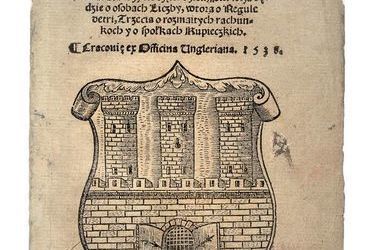 dzie o osobach Liczby, wtora o Regule
detri, Trzecia o rozmaitych rachun-
koch y o społkach Kupieczkich.
Cracovię ex Officina Ungleriana. 1538.